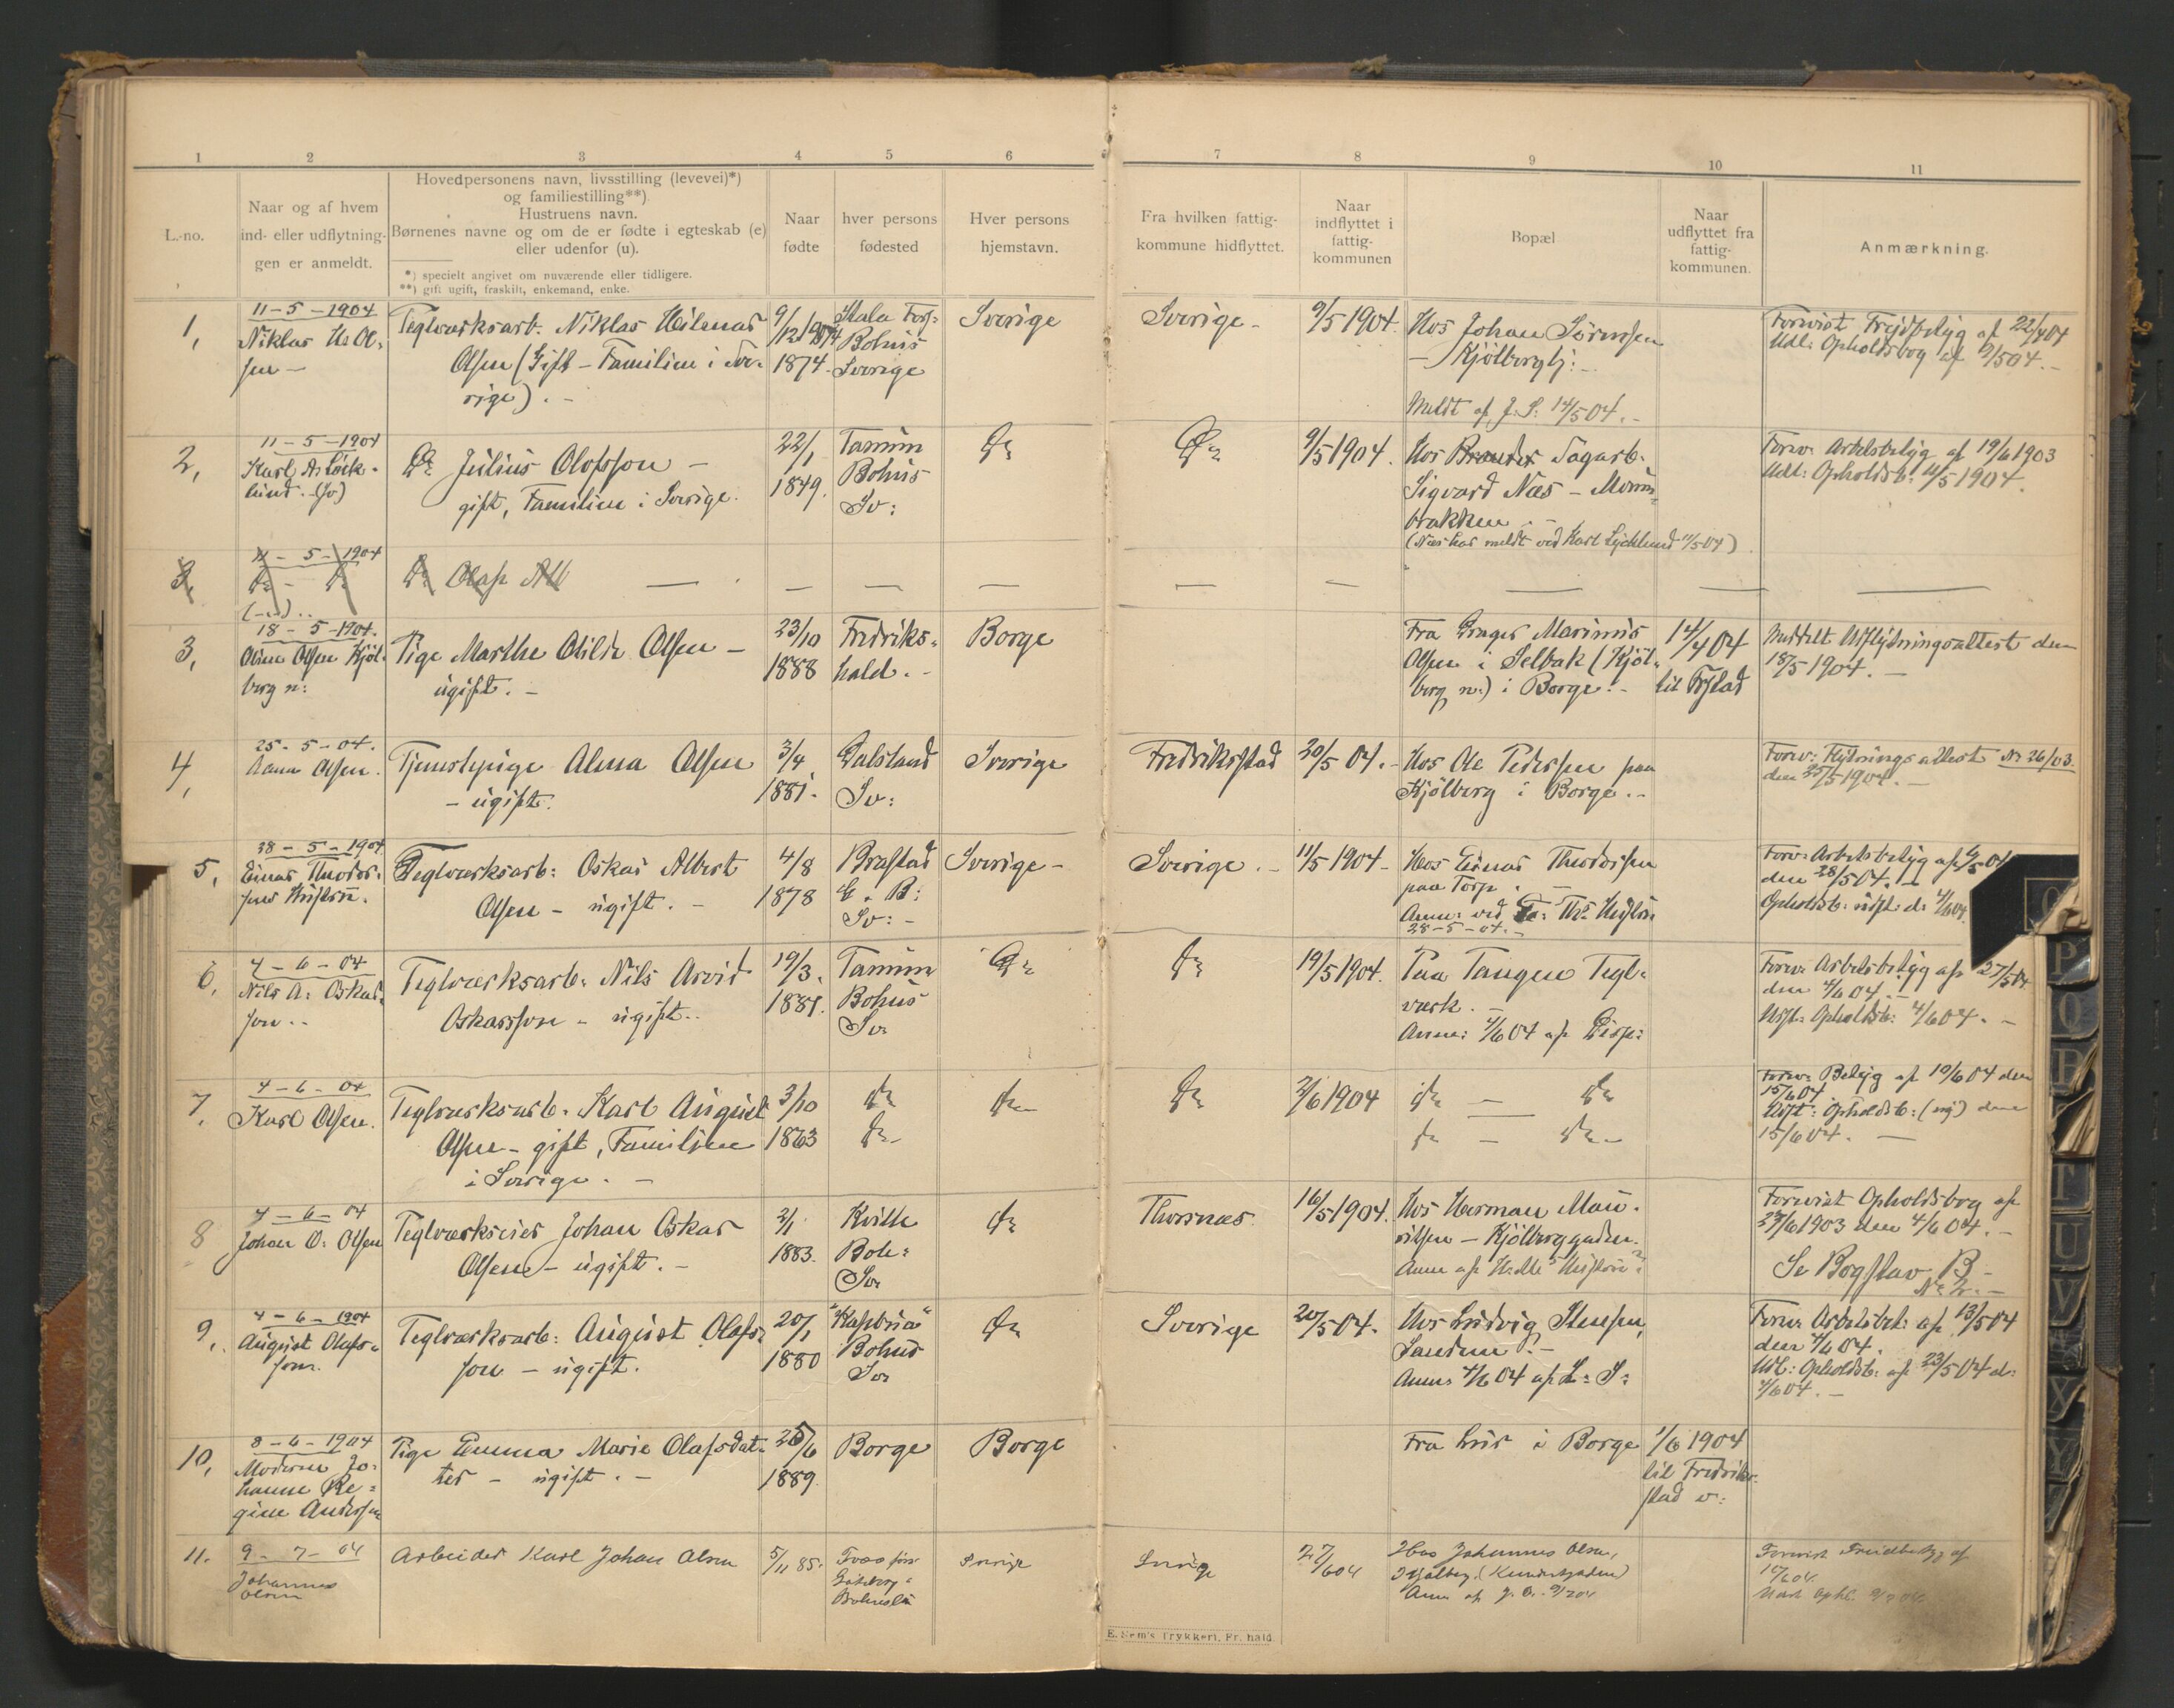 1 2 3 4 5 6 7 8 9 10 11
L.-no.
Naar og af hvem
ind- eller udflytnin-
gen er anmeldt.
Hovedpersonens navn, livsstilling (levevei)*)
og familiestilling**)
Hustruens navn.
Børnenes navne og om de er fødte i egteskab (e)
eller udenfor (u).
*) specielt angivet om nuværende eller tidligere.
**) gift ugift, fraskilt, enkemand, enke.
Naar
fødte
hver persons
fødested
Hver persons
hjemstavn.
Fra hvilken fattig-
kommune hidflyttet.
Naar
indflyttet i
fattig-
kommunen
Bopæl
Naar
udflyttet fra
fattig-
kommunen.
Anmærkning.
1,
11-5-1904
Niklas H. Ol-
sen -
Teglværksarb. Niklas Hilmar
Olsen (Gift - Familien i Sve-
rige). -
9/12
1874.
Bohus
Sverige
Sverige
Sverige -
9/5 1904.
Hos Johan Sørensen
- Kjölberg
Meldt af J. S. 14/5 04. -
Forevist Fredbetyg af 22/4 04
Udl: Opholdsbog af 9/5 04. -
2,
11-5-1904
Karl
lund. - (Sv)
Do Julius Olofsson -
gift, Familien i Sverige.
22/1
1849.
Tanum
Bohus
Sv:
Do
Do
9/5 1904.
Hos Sagarb.
Sigvard Næs - Moum-
brakken. -
(Næs har meldt ved Karl 11/5 04)
Forev. Arbetsbetyg af 19/6 1903
Udl: Opholdsb. 11/5 1904.
3,
11-5-1904
Do - Do
Do Olaf
3,
18-5-1904.
Olsen Kjöl-
berg n:
Pige Marthe Otilde Olsen -
ugift. -
23/10
1888
Fredriks-
hald. -
Borge
Fra Marinus
Olsen i Selbak (Kjöl-
berg n:) i Borge. -
14/4 04
til
Meddelt Udflytningsattest den
18/5 1904. -
4,
25-5-04.
Anna Olsen.
Tjenestepige Alma Olsen
- ugift.
3/4
1881.
Dalsland
Sv:
Sverige
Fredriksstad
20/5 04. -
Hos Ole Pedersen paa
Kjölberg i Borge. -
Forev: Flytningsattest No 26/03.
den 25/5 1904. -
5,
28-5-1904
Einar Theodor-
sens Hustru.
Teglværksarb: Oskar Albert
Olsen - ugift. -
4/8
1878
Brastad
G. B:
Sv: -
Sverige -
Sverige. -
11/5 1904 -
Hos Einar Theodorsen
paa Torp. -
28-5-04. -
Forev: Arbetsbetyg af
den 28/5 04. -
Opholdsb: udst: d: 4/6 04
6,
4-6-04
Nils A: Oskars-
son. -
Teglværksarb: Nils Arvid
Oskarsson - ugift. -
19/3.
1881.
Tanum
Bohus
Sv:
Do
Do
19/5 1904.
Paa Tangen Tegl-
værk. -
Anm: 4/6 04 af
Forev: Arbetsbetyg af 27/5 04
den 4/6 04. -
Udst: Opholdsb: 4/6 04. -
7,
4-6-04
Karl Olsen.
Teglværksarb. Karl August
Olsen - gift, Familien
i Sverige. -
3/10
1863
Do
Do -
Do -
Do
2/6 1904
Do - Do
Do - Do -
Forev: Betyg af 10/6 04 den
15/6 04
Udst: Opholdsb: (ny) den
15/6 04. -
8
4-6-04
Johan O: Olsen
Teglværkseier Johan Oskar
Olsen - ugift. -
2/1
1883.
Kville
Boh:
Sv:
Do
Thorsnæs.
16/5 1904.
Hos Herman Mau-
ritsen - Kjölberggaden.
Forevist Opholdsbog af
den 4/6 04. -
Se Bogstav B -
9,
4-6-1904
August Olafs-
son.
Teglværksarb: August Olafs-
son - ugift.
20/1
1880
Bohus
Sv:
Do
Sverige
20/5 04.
Hos Ludvig
Sanden. -
Anm. 4/6 04 af L: S:
Forev: Arbetsbet: af 13/5 04
den 4/6 04.
Udl: Opholdsb: af 23/5 04 d:
4/6 04. -
10,
8-6-1904
Moderen Jo-
hanne Re-
gine Andersen
Pige Emma Marie Olafsdat-
ter - ugift. -
26/6
1889.
Borge
Borge
Fra i Borge
1/6 1904
til Fredrik-
stad
11.
9-7-04
Johannes
Olsen
Arbeider Karl Johan Olsen
5/11 85.
Göteborg
Bohuslän
Sverige
Sverige
27/6 04
Hos Johannes Olsen,
Kjølberg.
Anm af J. O. 9/7 04
Forevist Freidbetyg af
E. Sem's Trykkeri, Fr.hald.
O
P
T
U
V
Y